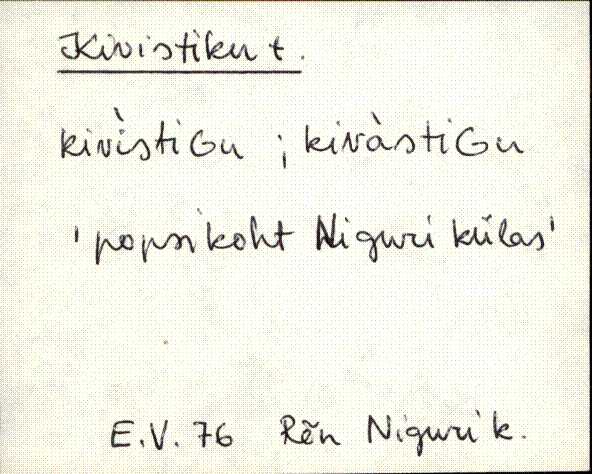 Kivistiku t.
kivìstiGu ; kivàstiGu
'popsikoht Niguri külas'
E.V. 76 Rõn Niguri k.